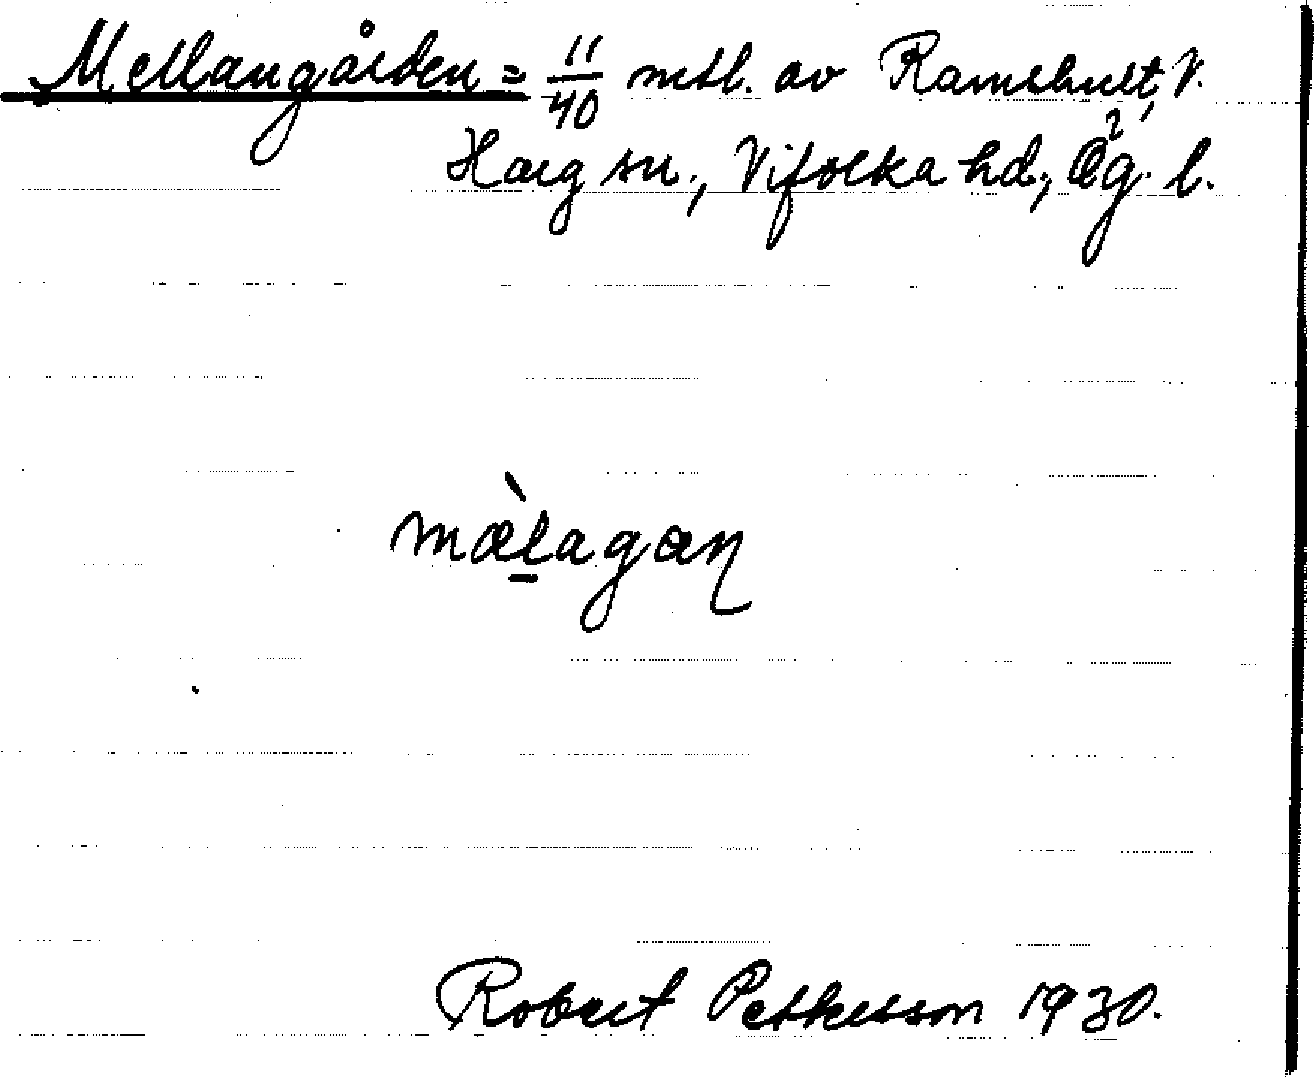 Mellangården = 11/40 mtl. av Ramshult, V.
Harg sn., Vifolka hd., Ög. l.
mæ̀lagan
Robert Pettersson 1930.